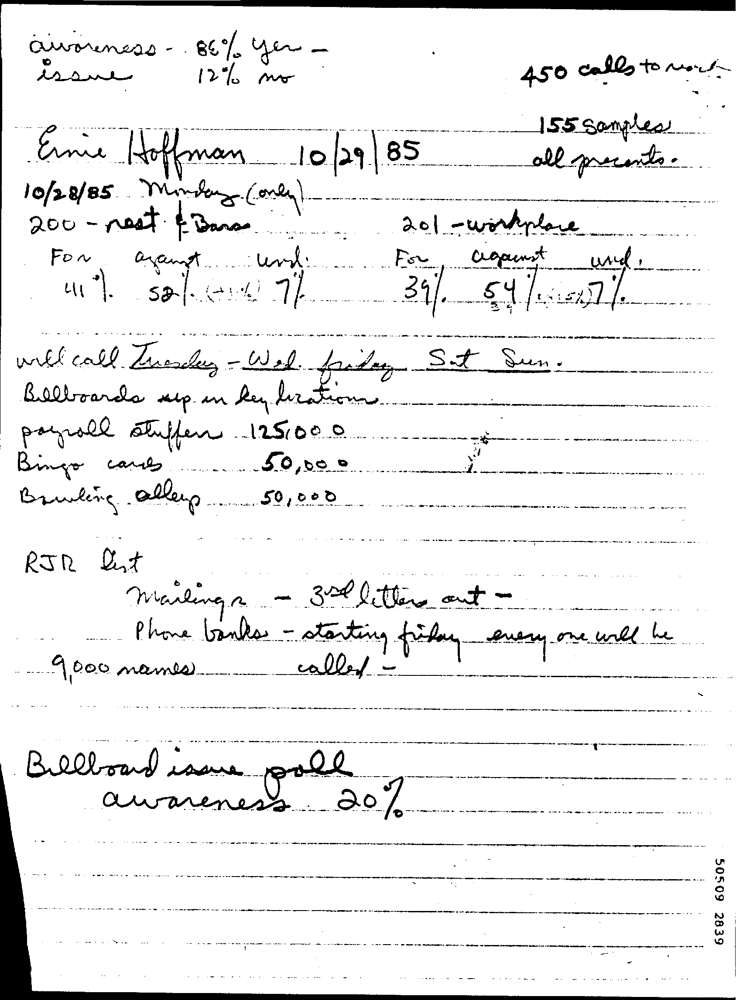 awareness - 86% yes -
issue 12% no
450 calls to reach
155 samples
all precents.
Ernie Hoffman 10/29/85
10/28/85 Monday (only)
200 - rest & Bars 201 - workplace
For against und. For against und.
41% 52% 7% 39% 54% 7%
will call Tuesday - Wed. friday Sat Sun.
Billboards up in key locations
payroll stuffers 125,000
Bingo cards 50,000
Bowling alleys 50,000
RJR list
mailings - 3rd letters out -
Phone banks - starting friday every one will be
9,000 names called -
Billboard issue poll
awareness 20%
50509 2839